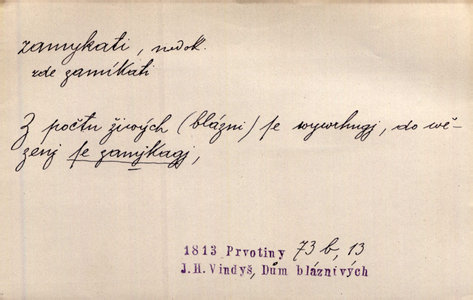 zamykati, nedok.
zde zamíkati
Z počtu živých (blázni) se wywrhugj, do wě-
zenj se zamjkagj,
1813 Prvotiny 73 b, 13
J. H. Vindyš, Dům bláznivých